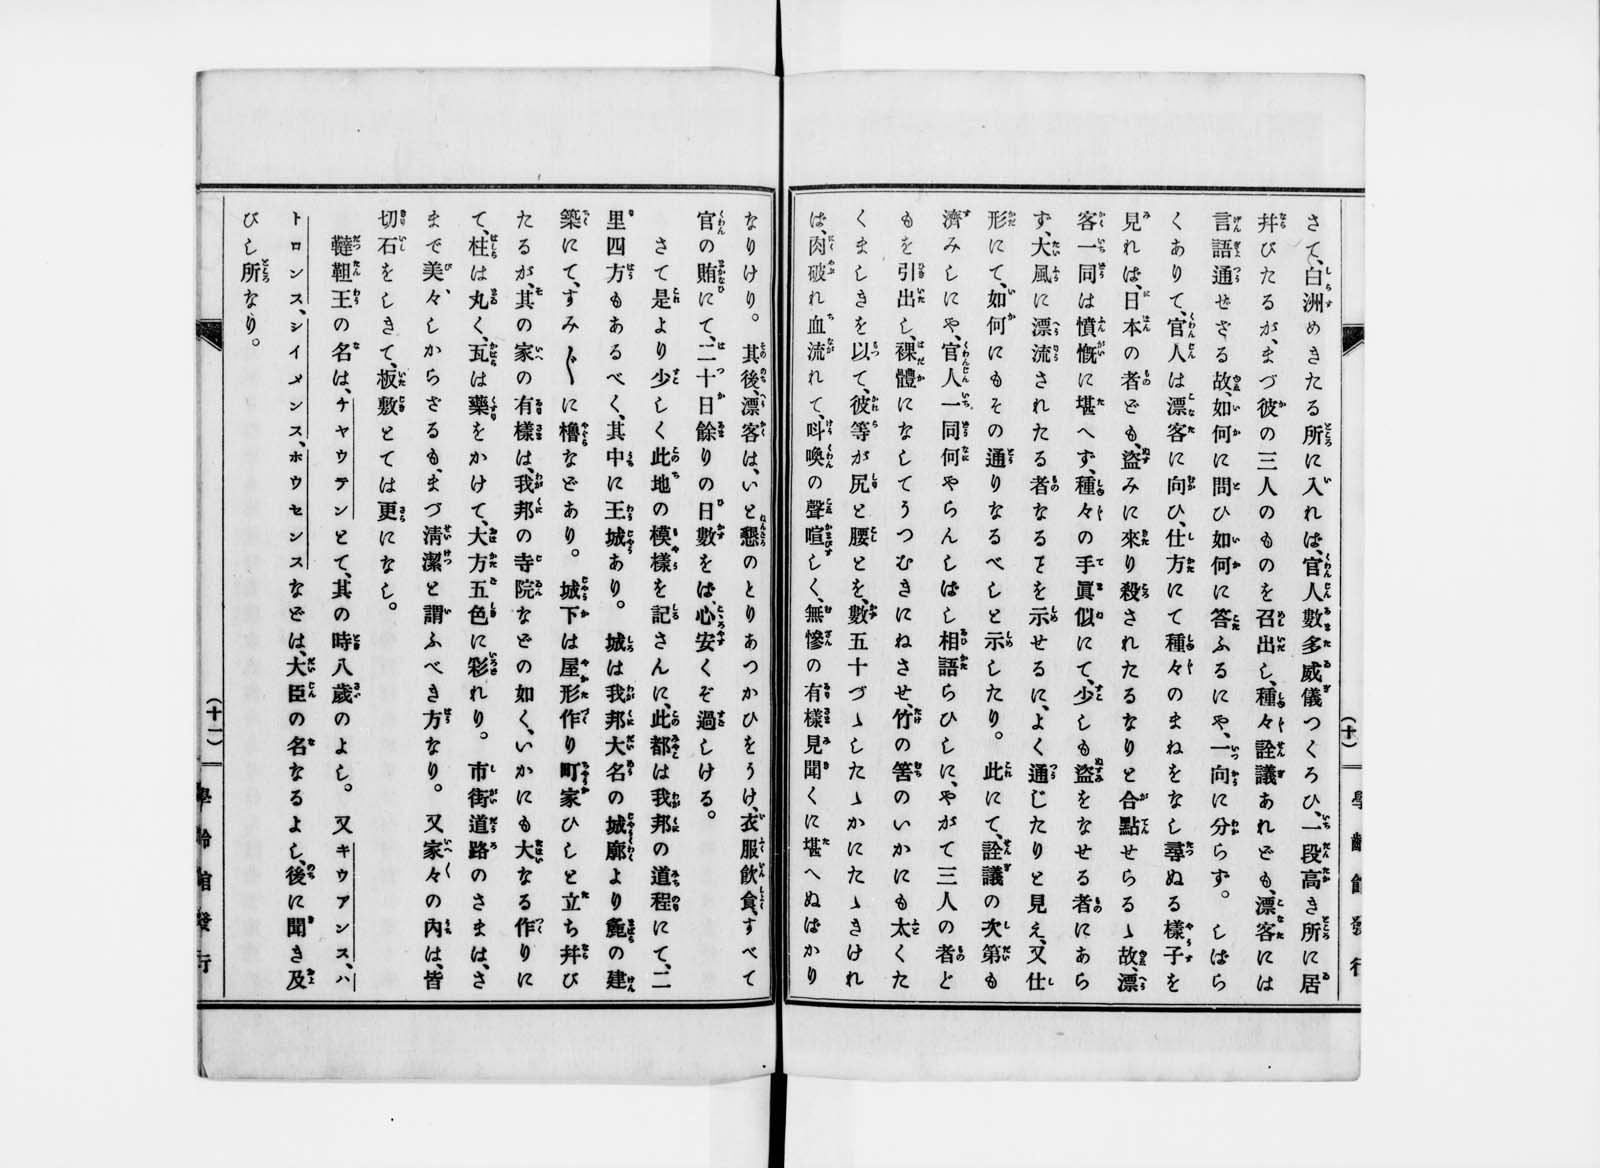 さて、白洲めきたる所に入れば、官人數多威儀つくろひ、一段高き所に居
幷びたるが、まづ彼の三人のものを召出し、種々詮議あれども、漂客には
言語通せさる故、如何に問ひ如何に答ふるにや、一向に分らず。しばら
くありて、官人は漂客に向ひ、仕方にて種々のまねをなし尋ぬる樣子を
見れば、日本の者ども、盜みに來り殺されたるなりと合點せらるゝ故、漂
客一同は憤慨に堪へず、種々の手眞似にて、少しも盜をなせる者にあら
ず、大風に漂流されたる者なるヿを示せるに、よく通じたりと見え、又仕
形にて、如何にもその通りなるべしと示したり。此にて、詮議の次第も
濟みしにや、官人一同何やらんしばし相語らひしに、やがて三人の者と
もを引出し、裸體になしてうつむきにねさせ、竹の笞のいかにも太くた
くましきを以て、彼等が尻と腰とを、數五十づゝしたゝかにたゝきけれ
ば、肉破れ血流れて、叫喚の聲喧しく、無慘の有樣見聞くに堪へぬばかり
(十)
學齡館發行
なりけり。其後、漂客は、いと懇のとりあつかひをうけ、衣服飮食、すべて
官の賄にて、二十日餘りの日數をは、心安くぞ過しける。
さて是より少しく此地の模樣を記さんに、此都は我邦の道程にて、二
里四方もあるべく、其中に王城あり。城は我邦大名の城廓より麁の建
築にて、すみ〴〵に櫓などあり。城下は屋形作り町家ひしと立ち幷び
たるが、其の家の有樣は、我邦の寺院などの如く、いかにも大なる作りに
て、柱は丸く、瓦は藥をかけて、大方五色に彩れり。市街道路のさまは、さ
まで美々しからざるも、まづ淸潔と謂ふべき方なり。又家々の內は、皆
切石をしきて、板敷とては更になし。
韃靼王の名は、チャウテンとて、其の時八歲のよし。又キウアンス、ハ
トロンス、シイメンス、ホウセンスなどは、大臣の名なるよし、後に聞き及
びし所なり。
(十一)
學齡館發行